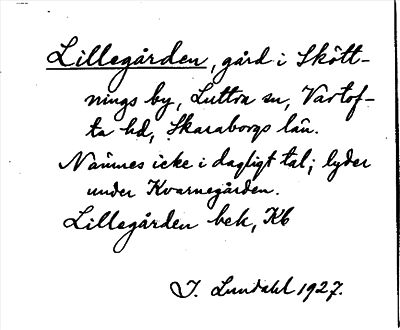 Lillegården, gård i Skött-
nings by, Luttra sn, Vartof-
ta hd, Skaraborgs län.
Nämnes icke i dagligt tal; lyder
under Kvarnegården.
Lillegården bek, Kb
I. Lundahl 1927.